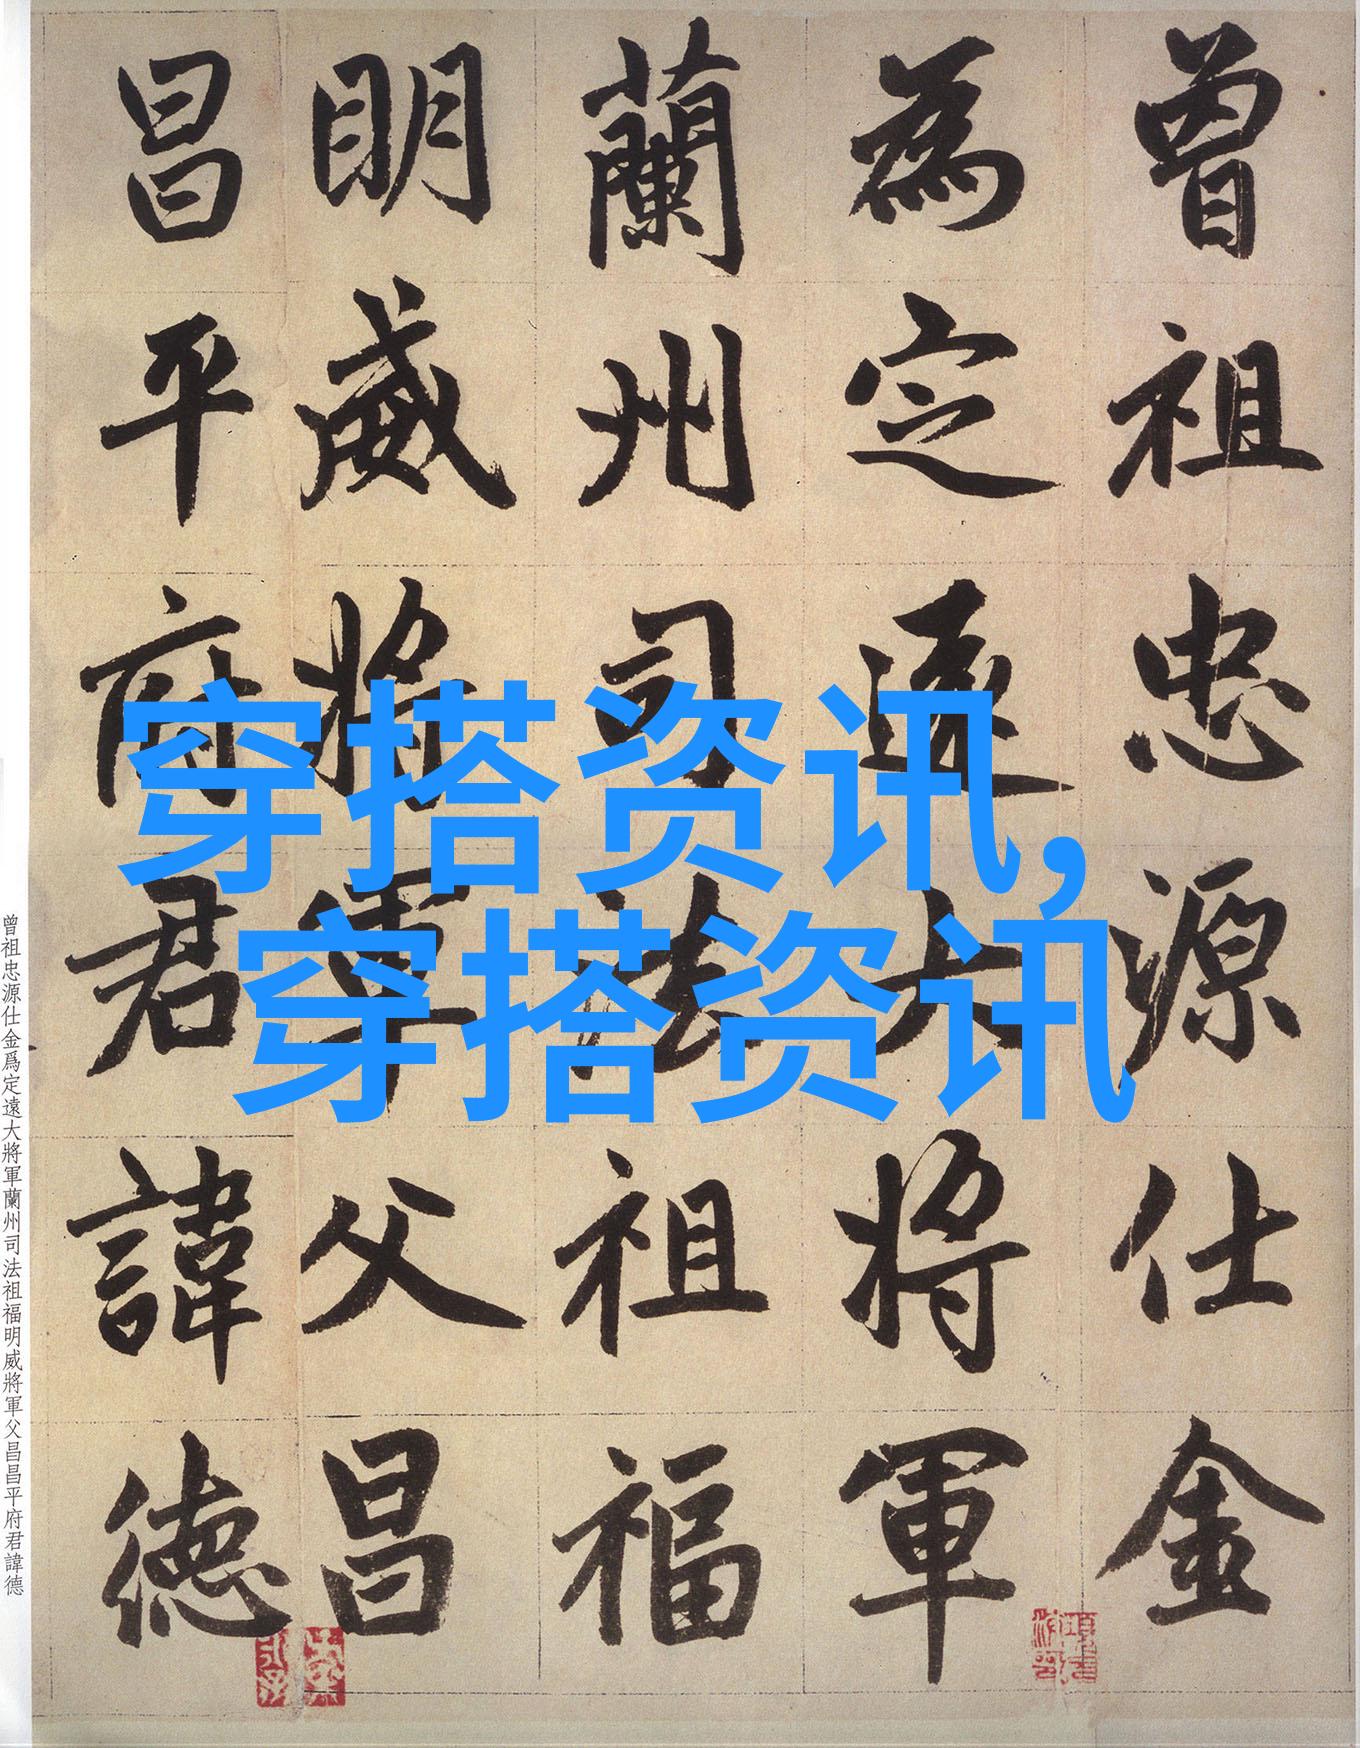 曾祖忠源仕金
為定遠大將軍
蘭州司法祖福
明威將軍父昌
昌平府君諱德
穿搭资讯,
穿搭资讯
曾祖忠源仕金爲定遠大將軍蘭州司法祖福明威將軍父昌昌平府君諱德